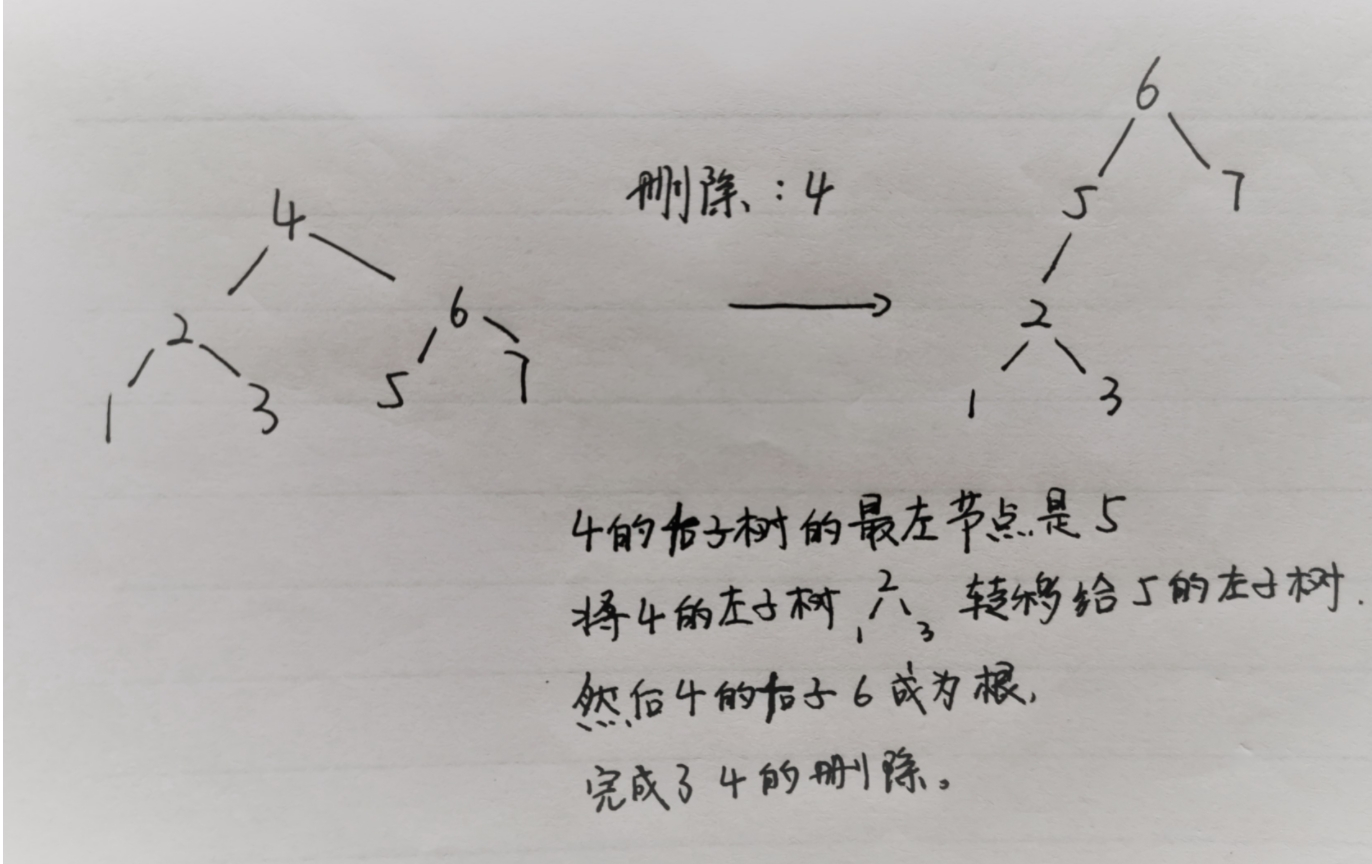 删除:4
4
2 6
1 3 5 7
6
5 7
2
1 3
4的右子树的最左节点是5
将4的左子树 2 1 3 转移给5的左子树.
然后4的右子6成为根,
完成了4的删除。